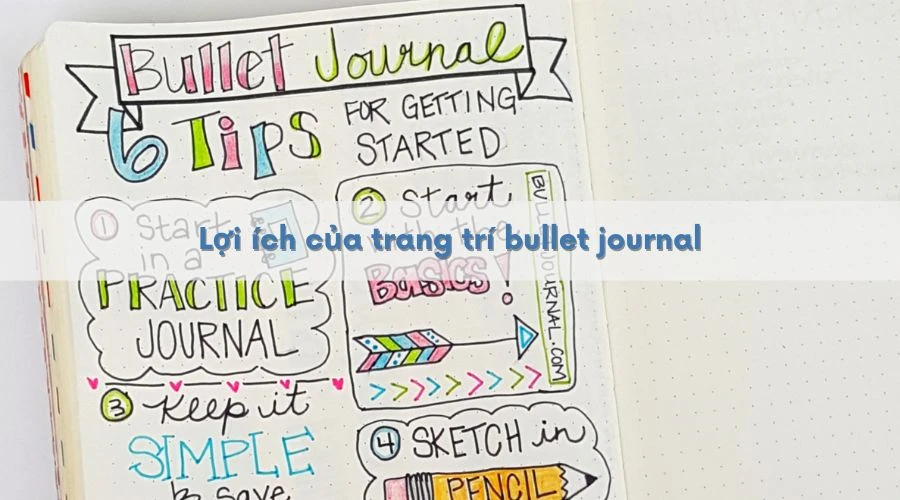 Bullet Journal
6 Tips
FOR GETTING
STARTED
Lợi ích của trang trí bullet journal
1 Start
in a
PRACTICE
JOURNAL
2 Start
with the
Basics!
BULLETJOURNAL.COM
3 Keep it
SIMPLE
& save
4 SKETCH in
PENCIL